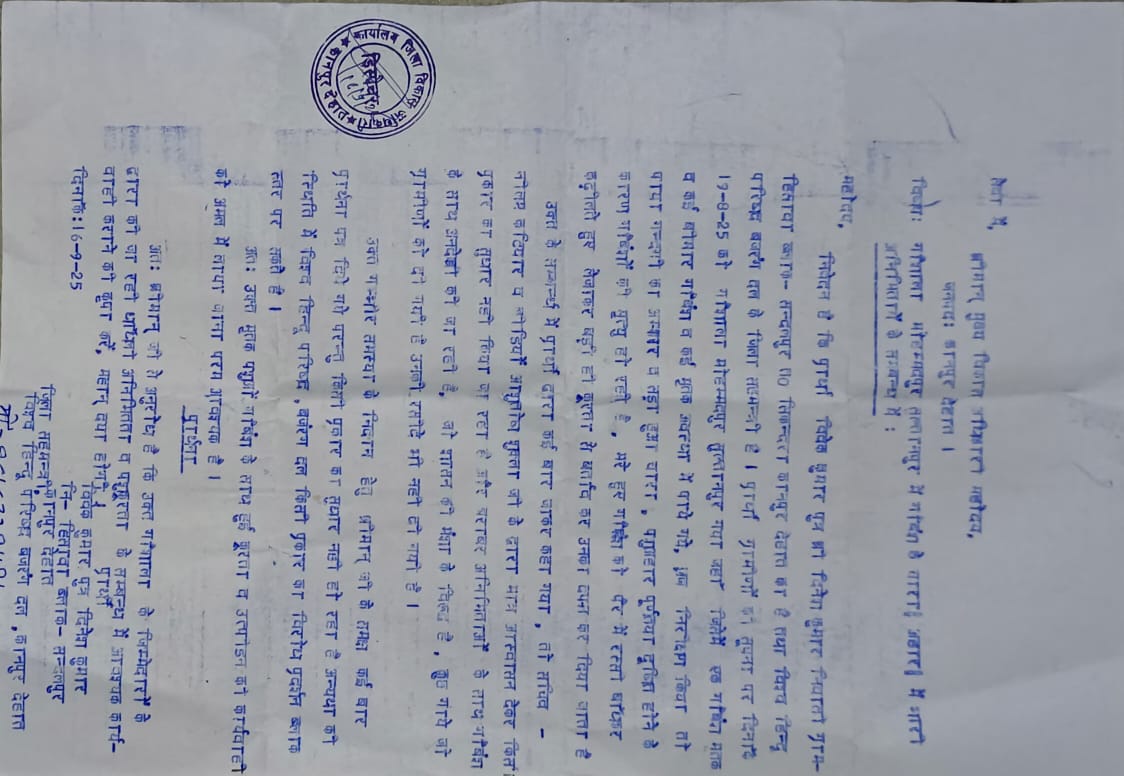 सेवा में,
श्रीमान् मुख्य विकास अधिकारी महोदय,
जनपद: कानपुर देहात ।
विषय: गौशाला मोहम्मदपुर सुल्तानपुर में गोवंश के चारा, आहार में भारी
अनिमितता के सम्बन्ध में :
महोदय,
निवेदन है कि प्रार्थी विवेक कुमार पुत्र श्री दिनेश कुमार निवासी ग्राम-
हिसावा ब्लाक- सन्दलपुर पो0 सिकन्दरा कानपुर देहात का है तथा विश्व हिन्दू
परिषद बजरंग दल के जिला सहमन्त्री है । प्रार्थी ग्रामीणों की सूचना पर दिनांक
19-8-25 को गौशाला मोहम्मदपुर सुल्तानपुर गया जहाँ जिसमें एक गोवंश मृतक
व कई बीमार गोवंश व कई मृतक अवस्था में पाये गये, जब निरीक्षण किया तो
पाया गन्दगी का अम्बार व सड़ा हुआ चारा, पशुआहार पूर्णतया दूषित होने के
कारण गोवंशों की मृत्यु हो रही है, मरे हुए गोवंश को पैर में रस्सी बांधकर
घसीटते हुए लेजाकर बड़ी ही क्रूरता से बर्ताव कर उनको दफना कर दिया जाता है
उक्त के सम्बन्ध में प्रार्थी द्वारा कई बार जाकर कहा गया, तो सचिव -
नीलम कटियार व बीडियो आशुतोष शुक्ला जी के द्वारा मात्र आश्वासन देकर किसी
प्रकार का सुधार नही किया जा रहा है और बराबर अनिमितता के साथ गोवंश
के साथ अनदेखी की जा रही है, जो शासन की मंशा के विरुद्ध है, कुछ गाये जो
ग्रामीणों को दी गयी है उनकी रसीदे भी नही दी गयी है ।
उक्त गम्भीर समस्या के निदान हेतु श्रीमान् जी के समक्ष कई बार
प्रार्थना पत्र दिये गये परन्तु किसी प्रकार का सुधार नही हो रहा है अन्यथा की
स्थिति में विश्व हिन्दू परिषद, बजरंग दल किसी प्रकार का विरोध प्रदर्शन ब्लाक
स्तर पर सकते है ।
अत: उक्त मृतक पशुओं गोवंश के साथ हुई क्रूरता व उत्पीड़न की कार्यवाही
को अमल में लाया जाना परम आवश्यक है ।
प्रार्थना
अत: श्रीमान् जी से अनुरोध है कि उक्त गौशाला के जिम्मेदारों के
द्वारा की जा रही धांधली अनिमितता व पशुक्रूरता के सम्बन्ध में आवश्यक कार्य-
वाही कराने की कृपा करें, महान् दया होगी ।
दिनांक: 16-9-25
प्रार्थी
विवेक कुमार पुत्र दिनेश कुमार
नि- हिसावा ब्लाक- सन्दलपुर
जिला सहमन्त्री, कानपुर देहात
विश्व हिन्दू परिषद बजरंग दल, कानपुर देहात
कार्यालय जिला विकास अधिकारी
कानपुर देहात
डिस्पैचर